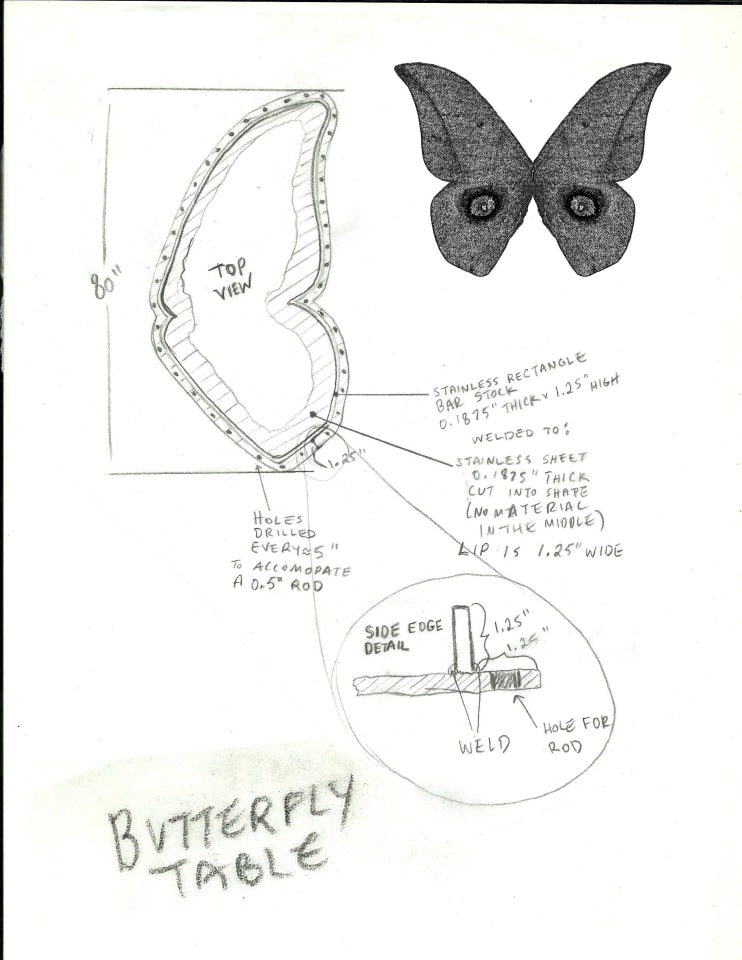 80"
TOP
VIEW
STAINLESS RECTANGLE
BAR STOCK
0.1875" THICK x 1.25" HIGH
WELDED TO:
STAINLESS SHEET
0.1875" THICK
CUT INTO SHAPE
(NO MATERIAL
IN THE MIDDLE)
LIP IS 1.25" WIDE
1.25"
HOLES
DRILLED
EVERY ≈ 5"
TO ACCOMODATE
A 0.5" ROD
SIDE EDGE
DETAIL
1.25"
1.25"
WELD
HOLE FOR
ROD
BUTTERFLY
TABLE